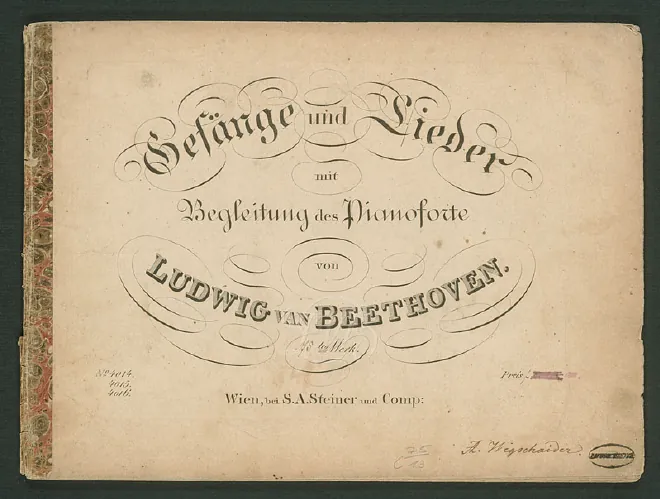 Gesänge und Lieder
mit
Begleitung des Pianoforte
von
LUDWIG VAN BEETHOVEN.
Werk.
Wien, bei S.A. Steiner und Comp:
No 4014.
4015.
4016.
Preis
75
C 13
A. Wegschaider.